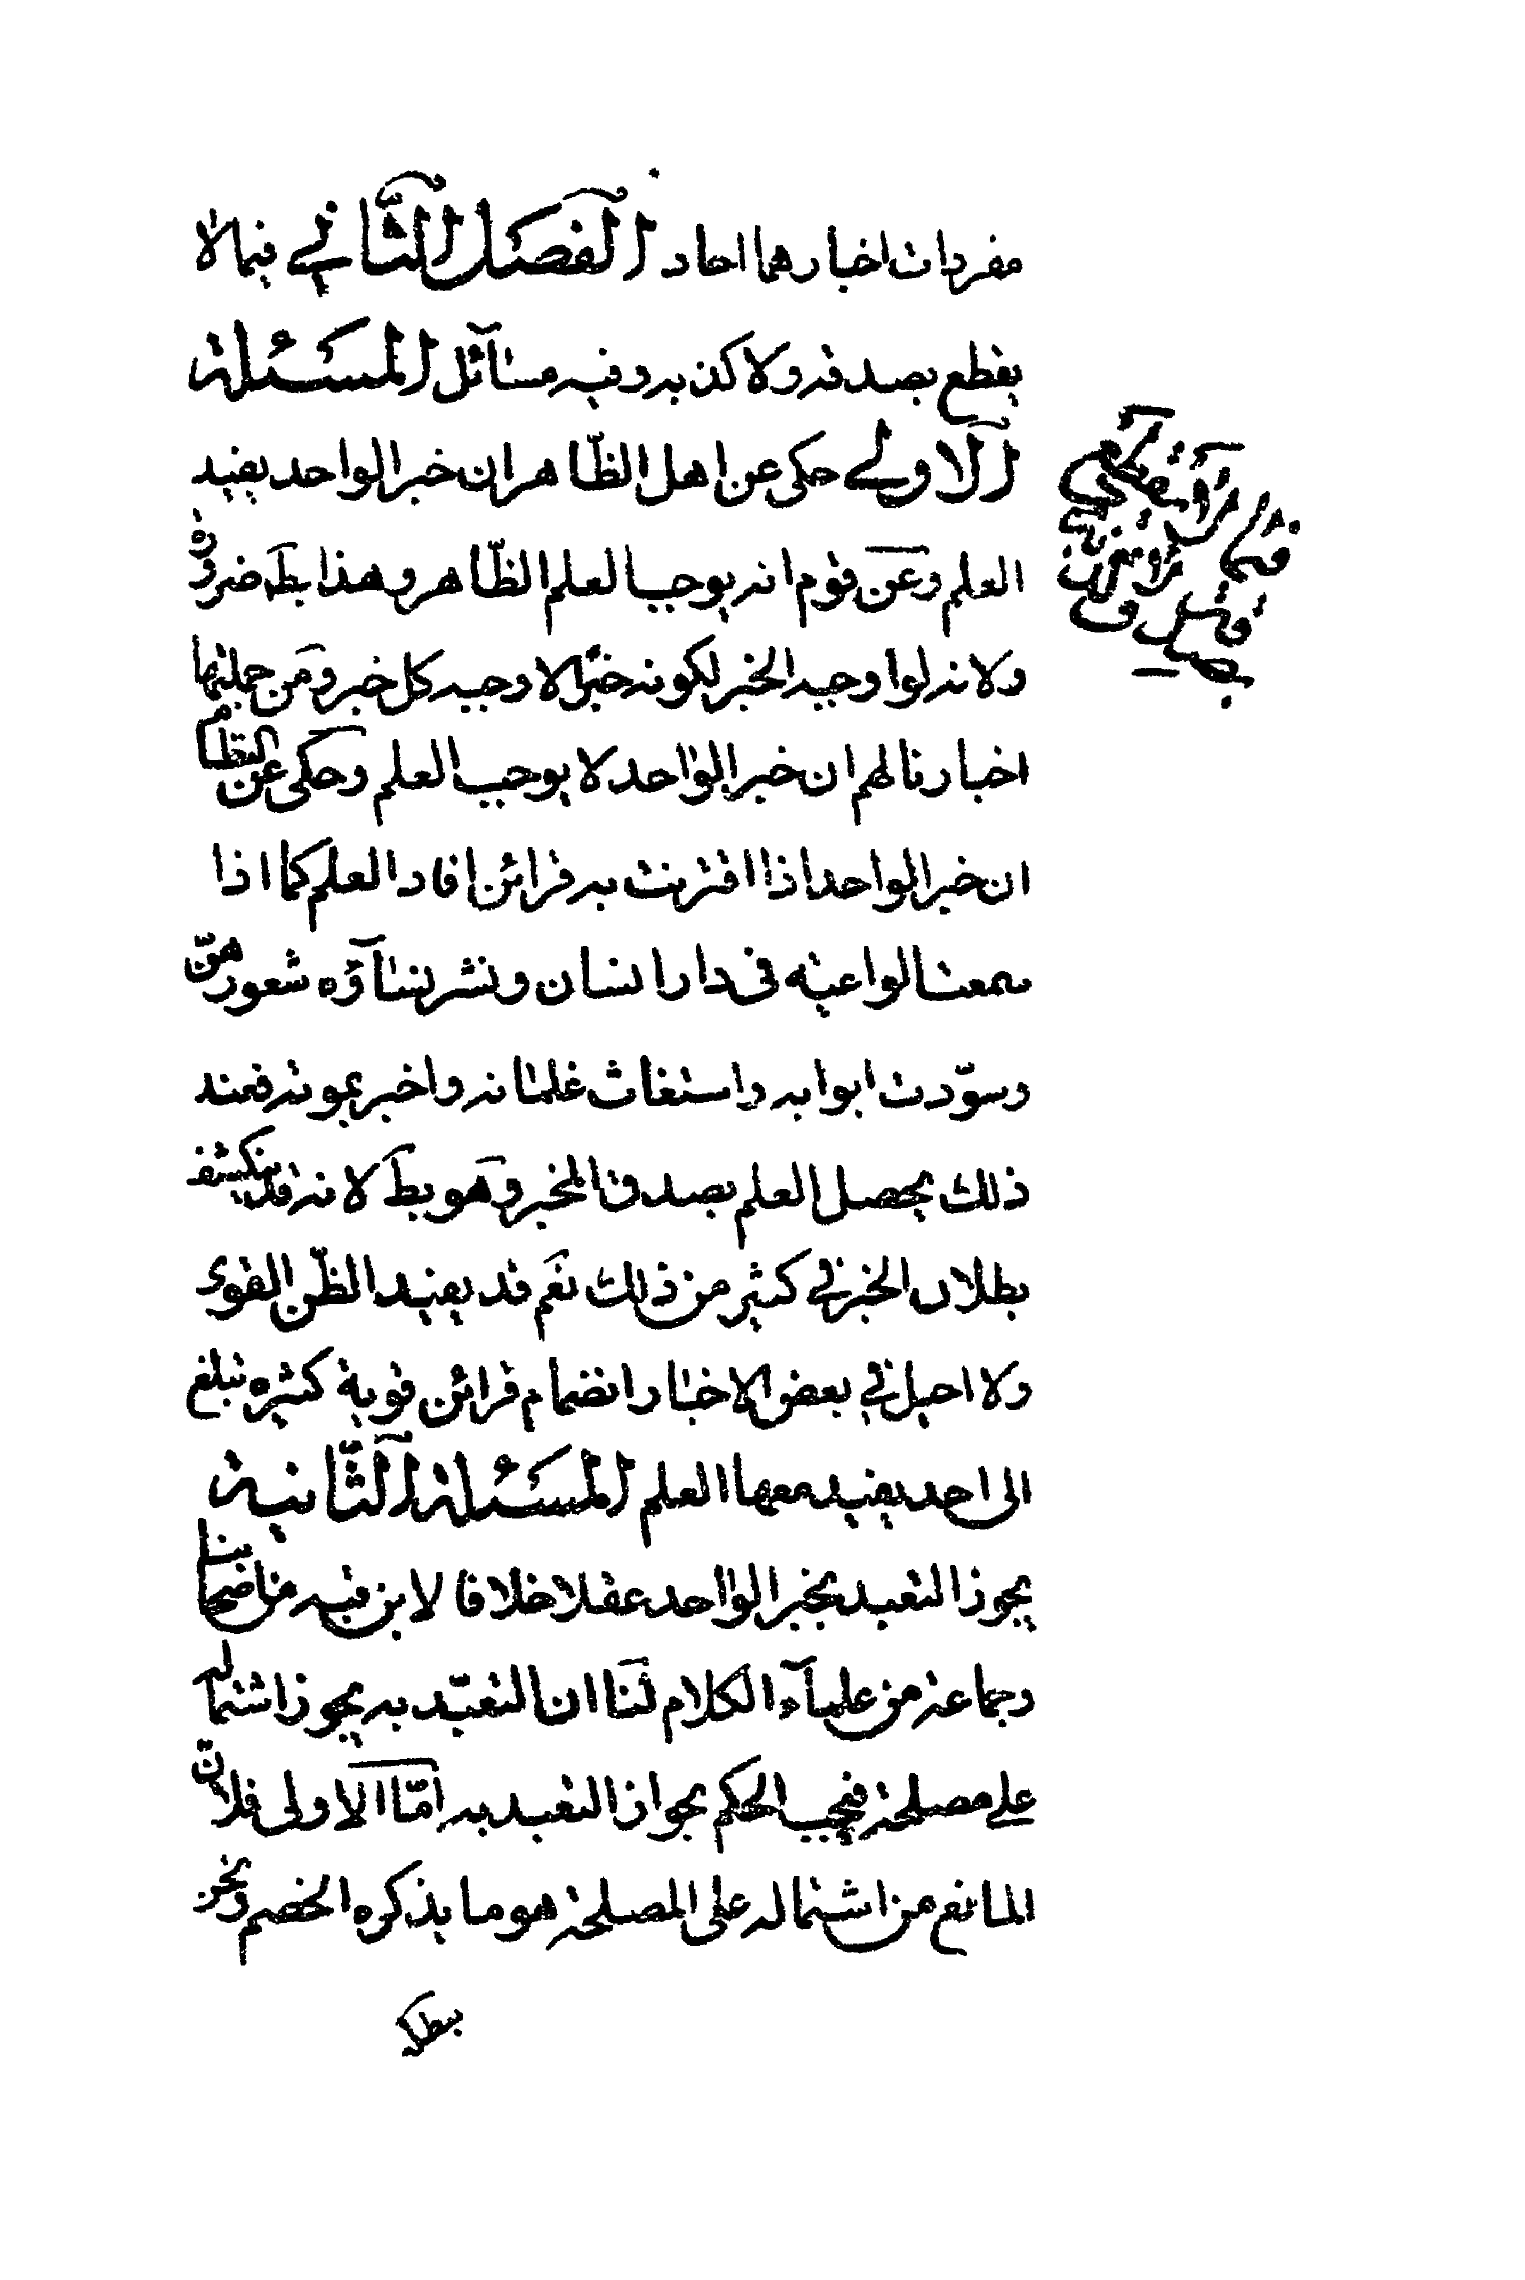 مفردات اخبارهما احاد الفصل الثاني فيما لا
يقطع بصدقه ولا كذبه وفيه مسائل المسئلة
الاولى حكى عن اهل الظاهر ان خبر الواحد يفيد
العلم وعن قوم انه يوجب العلم الظاهر وهذا بط ضرورة
ولانه لو اوجبه الخبر لكونه خبرا لاوجبه كل خبر ومن جملتها
اخبارنا لهم ان خبر الواحد لا يوجب العلم وحكى عن النظام
ان خبر الواحد اذا اقترنت به قرائن افاد العلم كما اذا
سمعنا الواعيه في دار انسان ونشر نساؤه شعورهن
وسوّدت ابوابه واستغاث غلمانه واخبر بموته فعند
ذلك يحصل العلم بصدق المخبر وهو بط لانه قد ينكشف
بطلان الخبر في كثير من ذلك نعم قد يفيد الظنّ القوى
ولا احيل في بعض الاخبار انضمام قرائن قوية كثيره تبلغ
الى احد يفيد معها العلم المسئلة الثّانية
يجوز التعبد بخبر الواحد عقلا خلافا لابن قبه من اصحابنا
وجماعة من علمآء الكلام لنا ان التعبّد به يجوز اشتماله
على مصلحة فيجب الحكم بجواز التعبد به امّا الاولى فلانّ
المانع من اشتماله على المصلحة هو ما يذكره الخصم ونحن
فيما لا يقطع
بصدقه